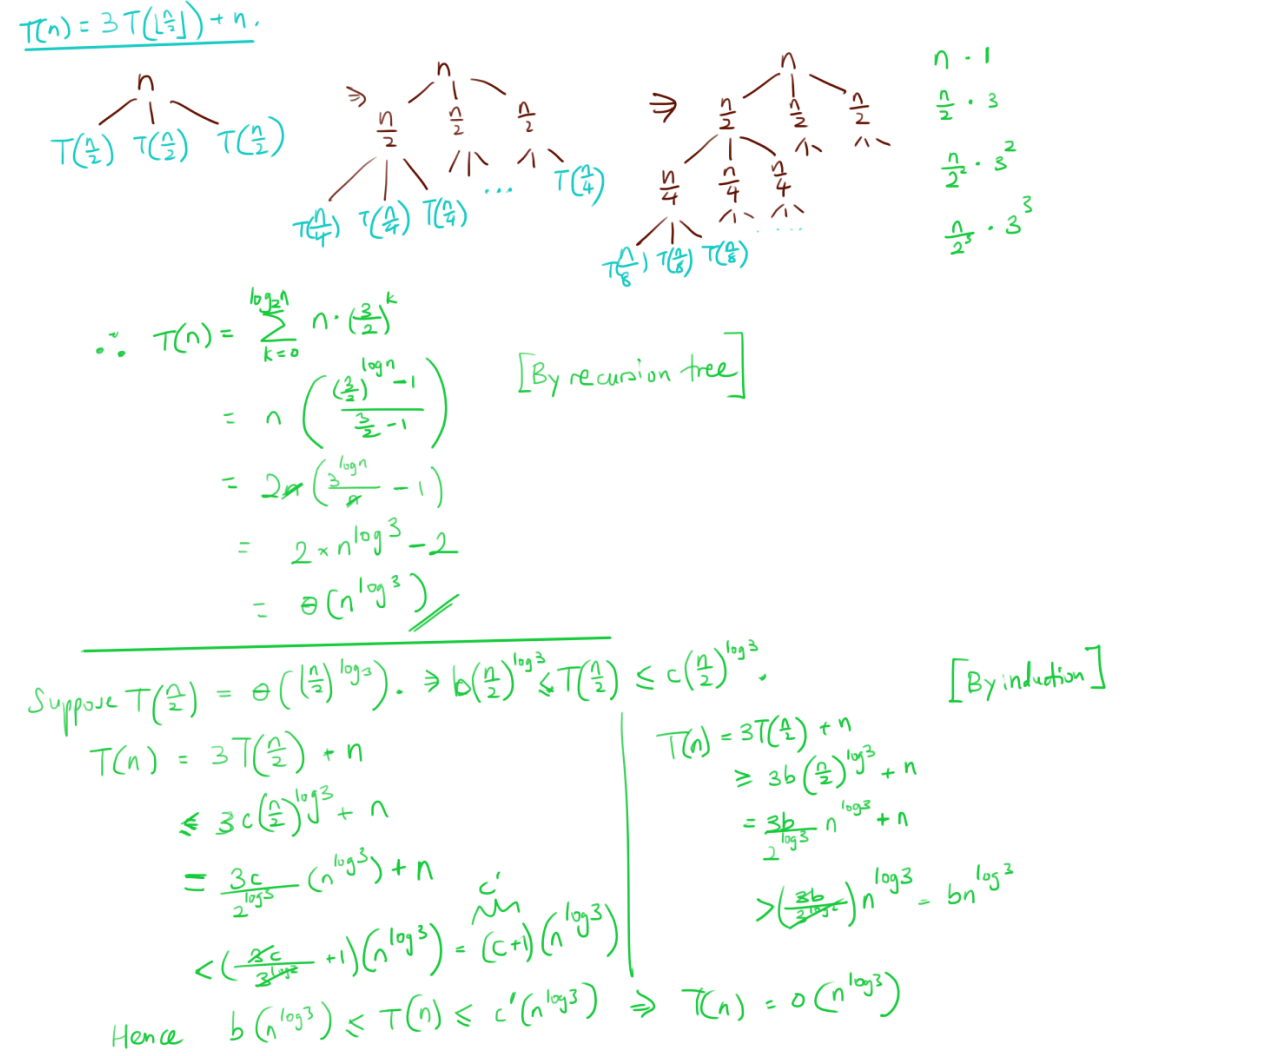 T(n) = 3T(⌊n/2⌋) + n.
n
T(n/2) T(n/2) T(n/2)
⇒ n
n/2 n/2 n/2
T(n/4) T(n/4) T(n/4) ... T(n/4)
⇒ n
n/2 n/2 n/2
n/4 n/4 n/4
T(n/8) T(n/8) T(n/8) ....
n · 1
n/2 · 3
n/2² · 3²
n/2³ · 3³
∴ T(n) = ∑_{k=0}^{log₂n} n · (3/2)^k
= n (((3/2)^{log n} - 1)/(3/2 - 1)) [By recursion tree]
= 2n (3^{log n}/n - 1)
= 2 × n^{log 3} - 2
= θ(n^{log 3})
Suppose T(n/2) = θ((n/2)^{log 3}). ⇒ b(n/2)^{log 3} ≤ T(n/2) ≤ c(n/2)^{log 3}. [By induction]
T(n) = 3T(n/2) + n
≤ 3c(n/2)^{log 3} + n
= 3c/2^{log 3} (n^{log 3}) + n
< (3c/3^{log 2} + 1)(n^{log 3}) = (c+1)(n^{log 3})
c'
T(n) = 3T(n/2) + n
≥ 3b(n/2)^{log 3} + n
= 3b/2^{log 3} n^{log 3} + n
> (3b/3^{log 2}) n^{log 3} = bn^{log 3}
Hence b(n^{log 3}) ≤ T(n) ≤ c'(n^{log 3}) ⇒ T(n) = O(n^{log 3})